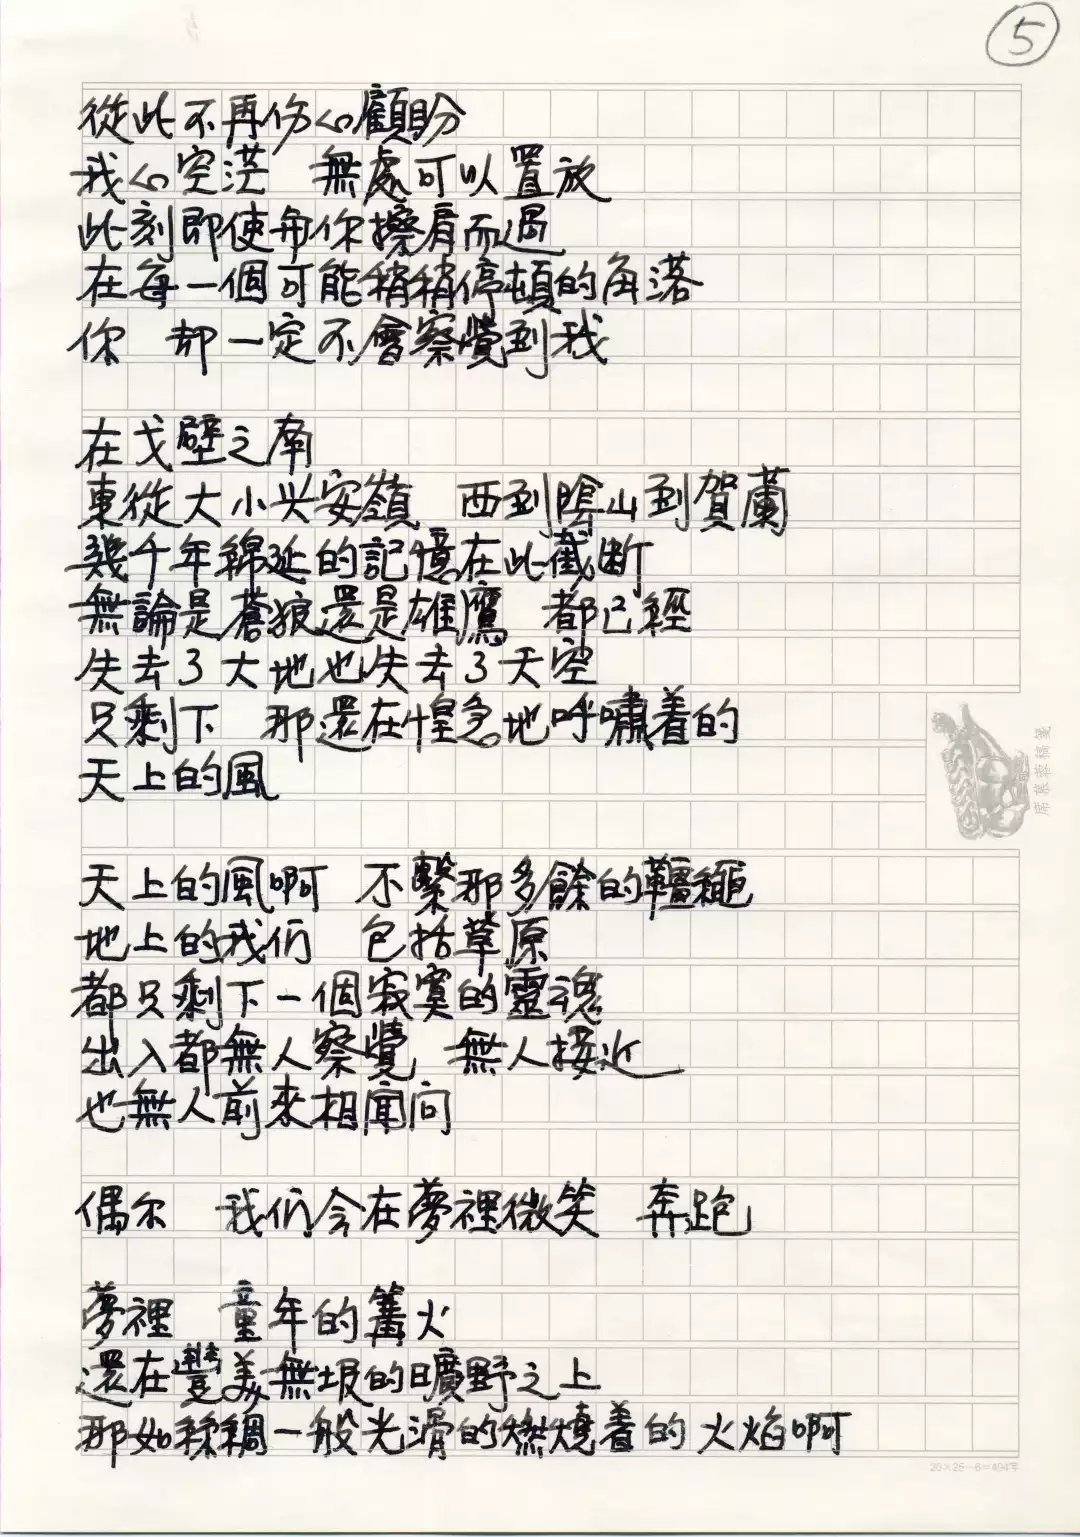 5
從此不再伤心顧盼
我心空茫　無處可以置放
此刻即使再你擦肩而過
在每一個可能稍稍停頓的角落
你　却一定不會察覺到我
在戈壁之南
東從大小兴安嶺　西到陰山到賀蘭
幾千年綿延的記憶在此截断
無論是蒼狼還是雄鷹　都已經
失去了大地也失去了天空
只剩下　那還在惶急地呼嘯着的
天上的風
席慕蓉稿箋
天上的風啊　不繫那多餘的韁繩
地上的我们　包括草原
都只剩下一個寂寞的靈魂
出入都無人察覺　無人接近
也無人前來相聞问
偶尔　我们会在夢裡微笑　奔跑
夢裡　童年的篝火
還在豐美無垠的曠野之上
那如絲綢一般光滑的燃燒着的火焰啊
20×25-6=494字